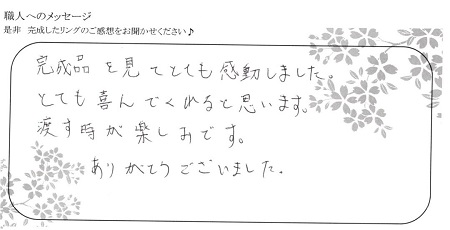 職人へのメッセージ
是非 完成したリングのご感想をお聞かせください♪
完成品を見てとても感動しました。
とても喜んでくれると思います。
渡す時が楽しみです。
ありがとうございました。